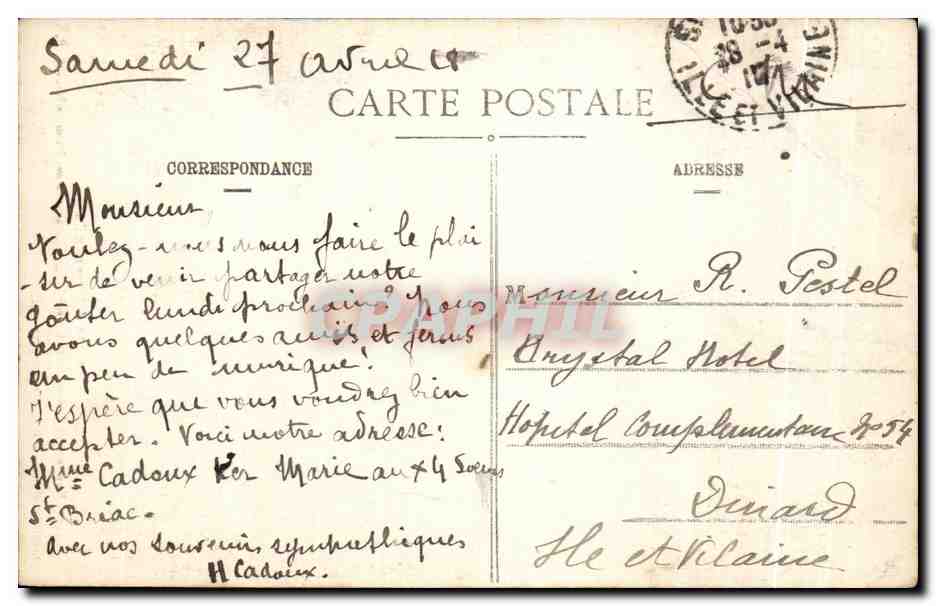 Samedi 27 avril 18
CARTE POSTALE
10 30
28 - 4
ILLE ET VILAINE
CORRESPONDANCE
ADRESSE
Monsieur,
Voulez-vous nous faire le plai
-sir de venir partager notre
goûter lundi prochain? Nous
avons quelques amis et ferons
un peu de musique!
J'espère que vous voudrez bien
accepter. Voici notre adresse:
Mme Cadoux Ker Marie aux 4 Soeurs
St Briac.
avec nos souvenirs sympathiques
H Cadoux.
CPAPHIL
Monsieur R. Pestel
Crystal Hotel
Hopital Complementaire No 54
Dinard
Ile et Vilaine